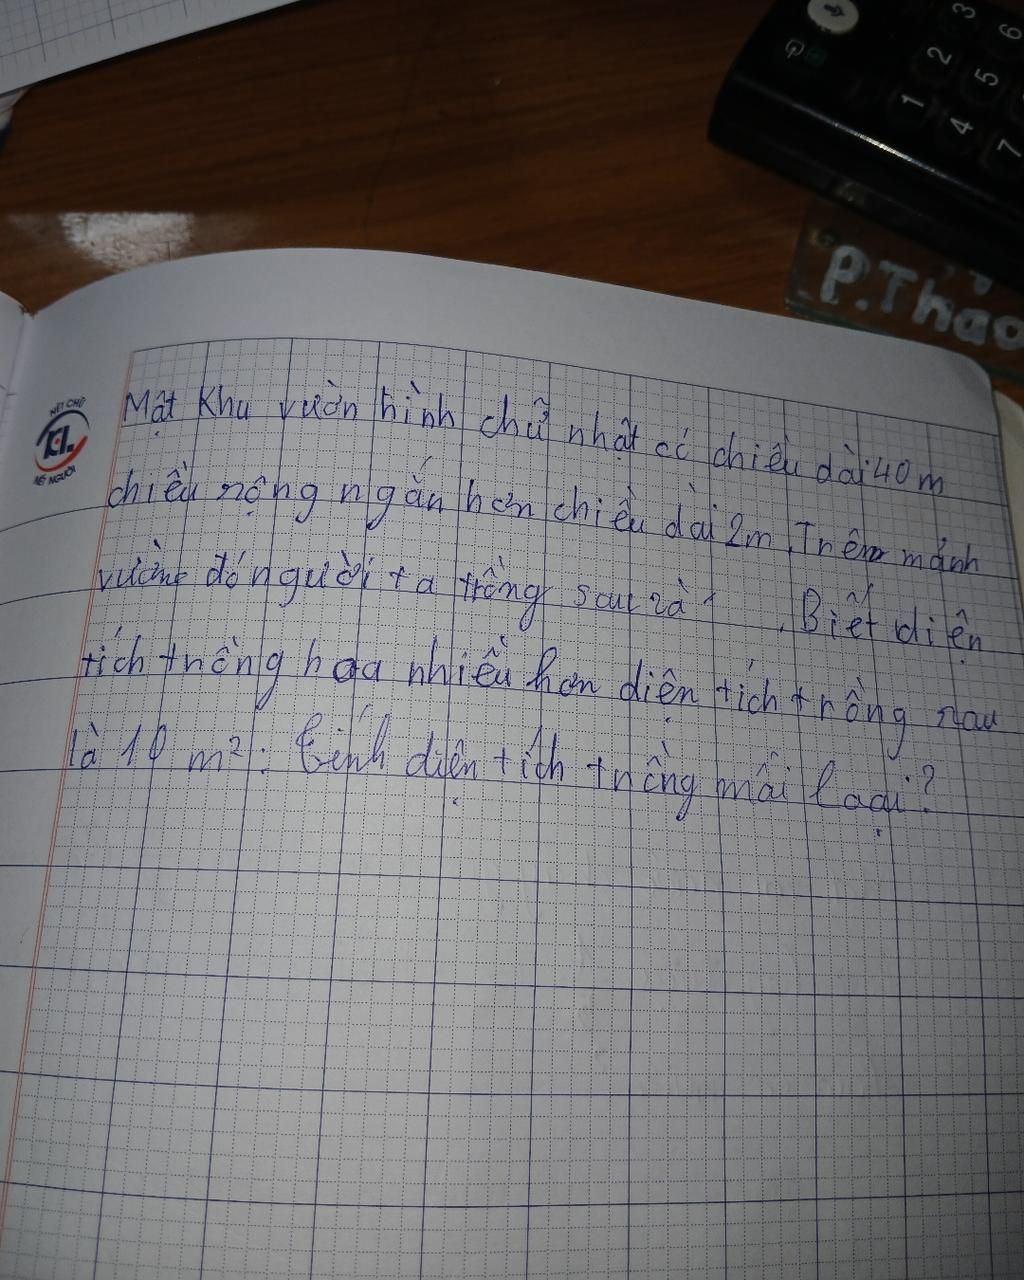 3 6
2 5
1 4 7
P.Thảo
NÉT CHỮ
NẾT NGƯỜI
Một khu vườn hình chữ nhật có chiều dài 40 m
chiều rộng ngắn hơn chiều dài 2m. Trên mảnh
vườn đó người ta trồng sau và . Biết diện
tích trồng hoa nhiều hơn diện tích trồng rau
là 10 m²: Tính diện tích trồng mỗi loại?